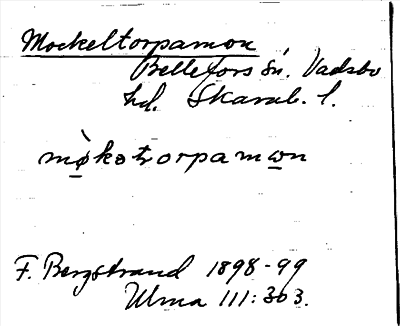 Mockeltorpamon
Bellefors sn. Vadsbo
hd. Skarab. l.
mø̀kətorpamωn
F. Bergstrand 1898-99
Ulma 111:303.